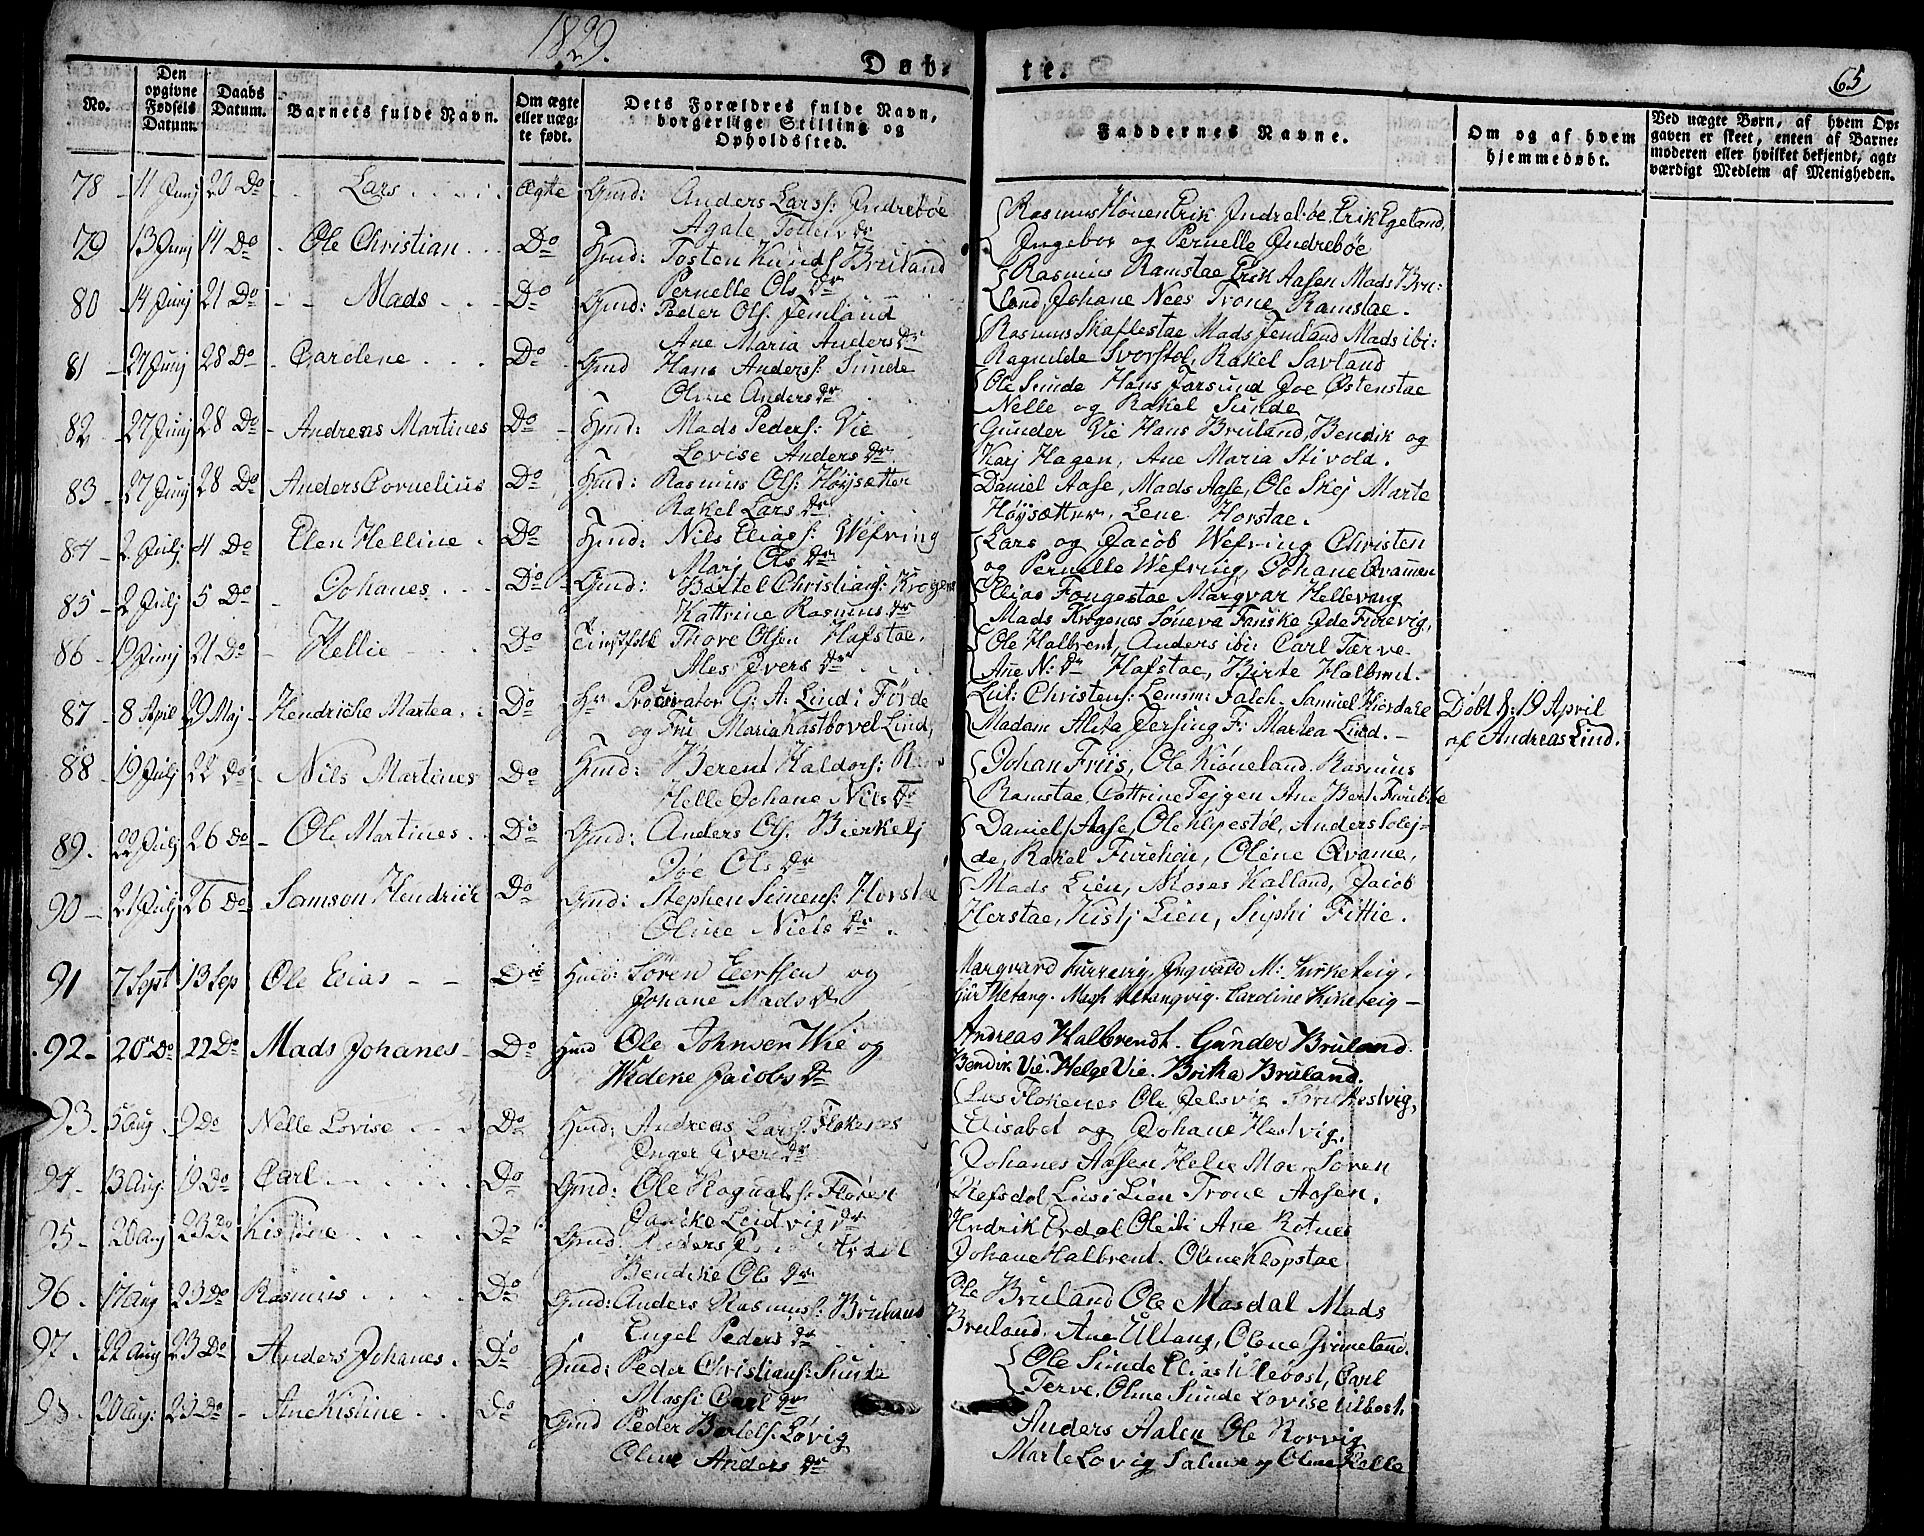 1829.
Døb-
te.
65
No.
Den opgivne Fødsels Datum.
Daabs Datum.
Barnets fulde Navn.
Om ægte eller uægte født.
Dets Forældres fulde Navn, borgerlige Stilling og Opholdssted.
Faddernes Navne.
Om og af hvem hjemmedøbt.
Ved uægte Børn, af hvem Opgaven er skeet, enten af Barnemoderen eller hvilket bekjendt, agtværdigt Medlem af Menigheden.
78 11 Junj 20 Do Lars Ægte Gmd: Anders Larss: Indrebøe
Agate Dr
Rasmus Erik Indrebøe, Erik Egeland,
Ingebor og Pernelle Indrebøe
79 13 Junj 14 Do Ole Christian Do Hmd: Tosten Bruland
Pernelle Ols Dr
Rasmus Ramstae Erik Aasen Mads Bru-
land, Johane Nees Trone Ramstae.
80 14 Junj 21 Do Mads Do Gmd: Peder Ols: Femland
Ane Maria Anders Dr
Rasmus Mads Femland Mads ibi:
Ragnilde Rakel Savland
81 27 Junj 28 Do Carolene Do Gmd Hans Anderss: Sunde
Oline Anders Dr
Ole Sunde Hans Farsund Joe Østenstae
Nelle og Rakel Sunde
82 27 Junj 28 Do Andreas Martines Do Hmd: Mads Peders: Vie
Lovise Anders Dr
Gunder Vie Hans Bruland, Bendik og
Karj Hagen, Ane Maria Stivold.
83 27 Junj 28 Do Anders Cornelius Do Hmd: Rasmus Ols: Høysætter
Rakel Lars Dr
Daniel Aase, Mads Aase, Ole Skej Marte
Høysætter, Lene Horstae.
84 2 Julj 4 Do Elen Helline Do Hmd: Nils Eliass: Wefring
Marj Ols Dr
Lars og Jacob Wefring Christen
og Pernelle Wefring, Johane Qvammen
85 2 Julj 5 Do Johanes Do Gmd: Bertel Christians:
Kattrine Rasmus Dr
Elias Fongestae Margvar Hellevang
Mads Krogenes Søneva Fanske Furevig,
86 19 Junj 21 Do Hellie Do Tinstfolk Thore Olsen Hafstae.
Ales Ivers Dr
Ole Halbrent, Anders ibi: Carl Tærve
Ane N: Dr Hafstae, Birte Halbrent.
87 8 April 29 Maj Hendriche Martea Do Hr Procurator G. A. Lind i Førde
og Fru Maria Lind,
Lut: Christens: Lensm: Falch. Samuel
Madam Alita F: Martea Lind.
Døbt d: 19 April
af Andreas Lind.
88 19 Julj 22 Do Nils Martines Do Hmd: Berent Haldors:
Helle Johane Nils Dr
Johan Friis, Ole Rasmus
Ramstae, Cattrine Tejgen Ane
89. 22 Julj 26 Do Ole Martines Do Gmd: Anders Ols: Bierkelj
Joe Ols Dr
Daniel Aase, Ole Anders Solej-
de, Rakel Olene Qvame,
90 21 Julj 26 Do Samson Hendrick Do Gmd: Stephen Simens: Horstae
Oline Niels Dr
Mads Lien, Moses Kalland, Jacob
Herstae, Kistj Lien, Siphi Fittie.
91 7 Sept 13 Sep Ole Elias Do Hmd: Søren og
Johane Mads Dr
Margvard Furrevig, Ingvald M:
Caroline Kirketeig
92 20 Do 22 Do Mads Johanes Do Hmd Ole Johnsen Wie og
Wideke Jacobs Dr
Andreas Halbrendt. Gunder Bruland.
Bendik Vie. Helge Vie. Britha Bruland.
93 5 Aug 9 Do Nelle Lovise Do Hmd: Andreas Larss: Flokenes
Inger Iver Dr
Lars Flokenes Ole
Elisabet og Johane Hestvig.
94 13 Aug: 19 Do Carl Do Gmd: Ole
Janicke Ludvig Dr
Johanes Aasen Helie Moe Søren
Refsdal Lien Trone Aasen.
95 20 Aug 23 Do Kistine Do Gmd Anders
Bendike Ols Dr
Hendrik Erdal Ane Rotnes
Johane Halbrent. Oline Klopstae
96. 17 Aug 23 Do Rasmus Do Gmd: Anders Rasmus: Bruland
Engel Peders Dr
Ole Bruland Ole Masdal Mads
Bruland. Ane Ultang, Olene Grimeland.
97. 22 Aug 23 Do Anders Johanes Do Hmd: Peder Christians: Sunde
Massi Carl Dr
Ole Sunde Elias Carl
Terve. Oline Sunde Lovise
98 20 Aug: 23 Do Anekistine Do Gmd Peder Bertels: Løvig
Oline Anders Dr
Anders Aalen Ole Norvig
Marte Lovig Salmoe og Oline